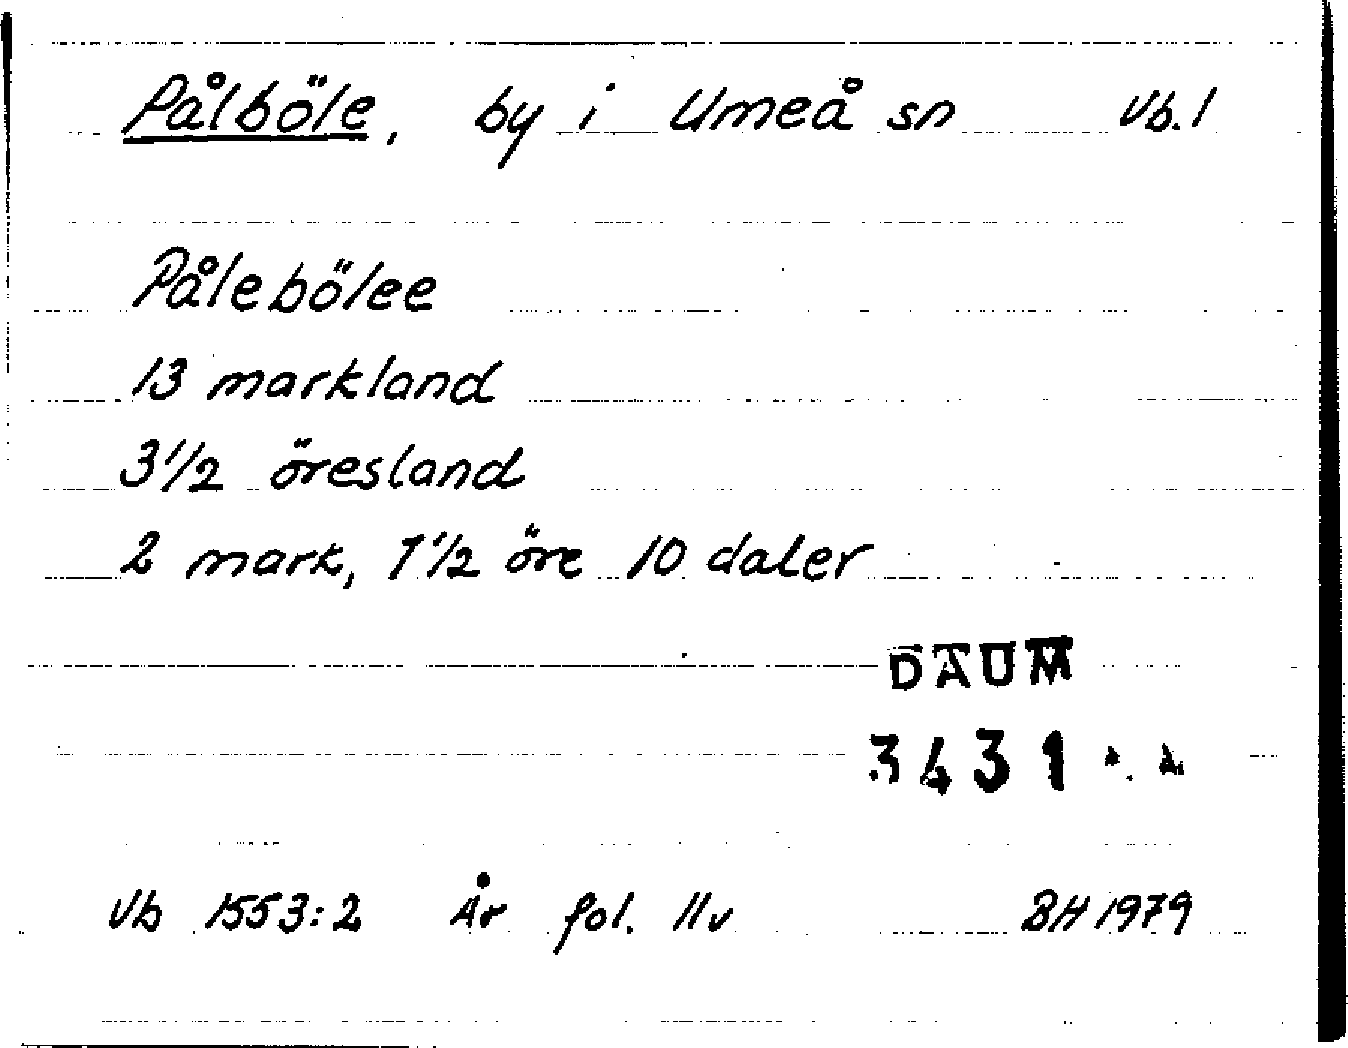 Pålböle, by i Umeå sn Vb. 1
Pålebölee
13 markland
3 1/2 öresland
2 mark, 7 1/2 öre 10 daler
DAUM
3431
Vb 1553:2 År fol. 11v BH 1979